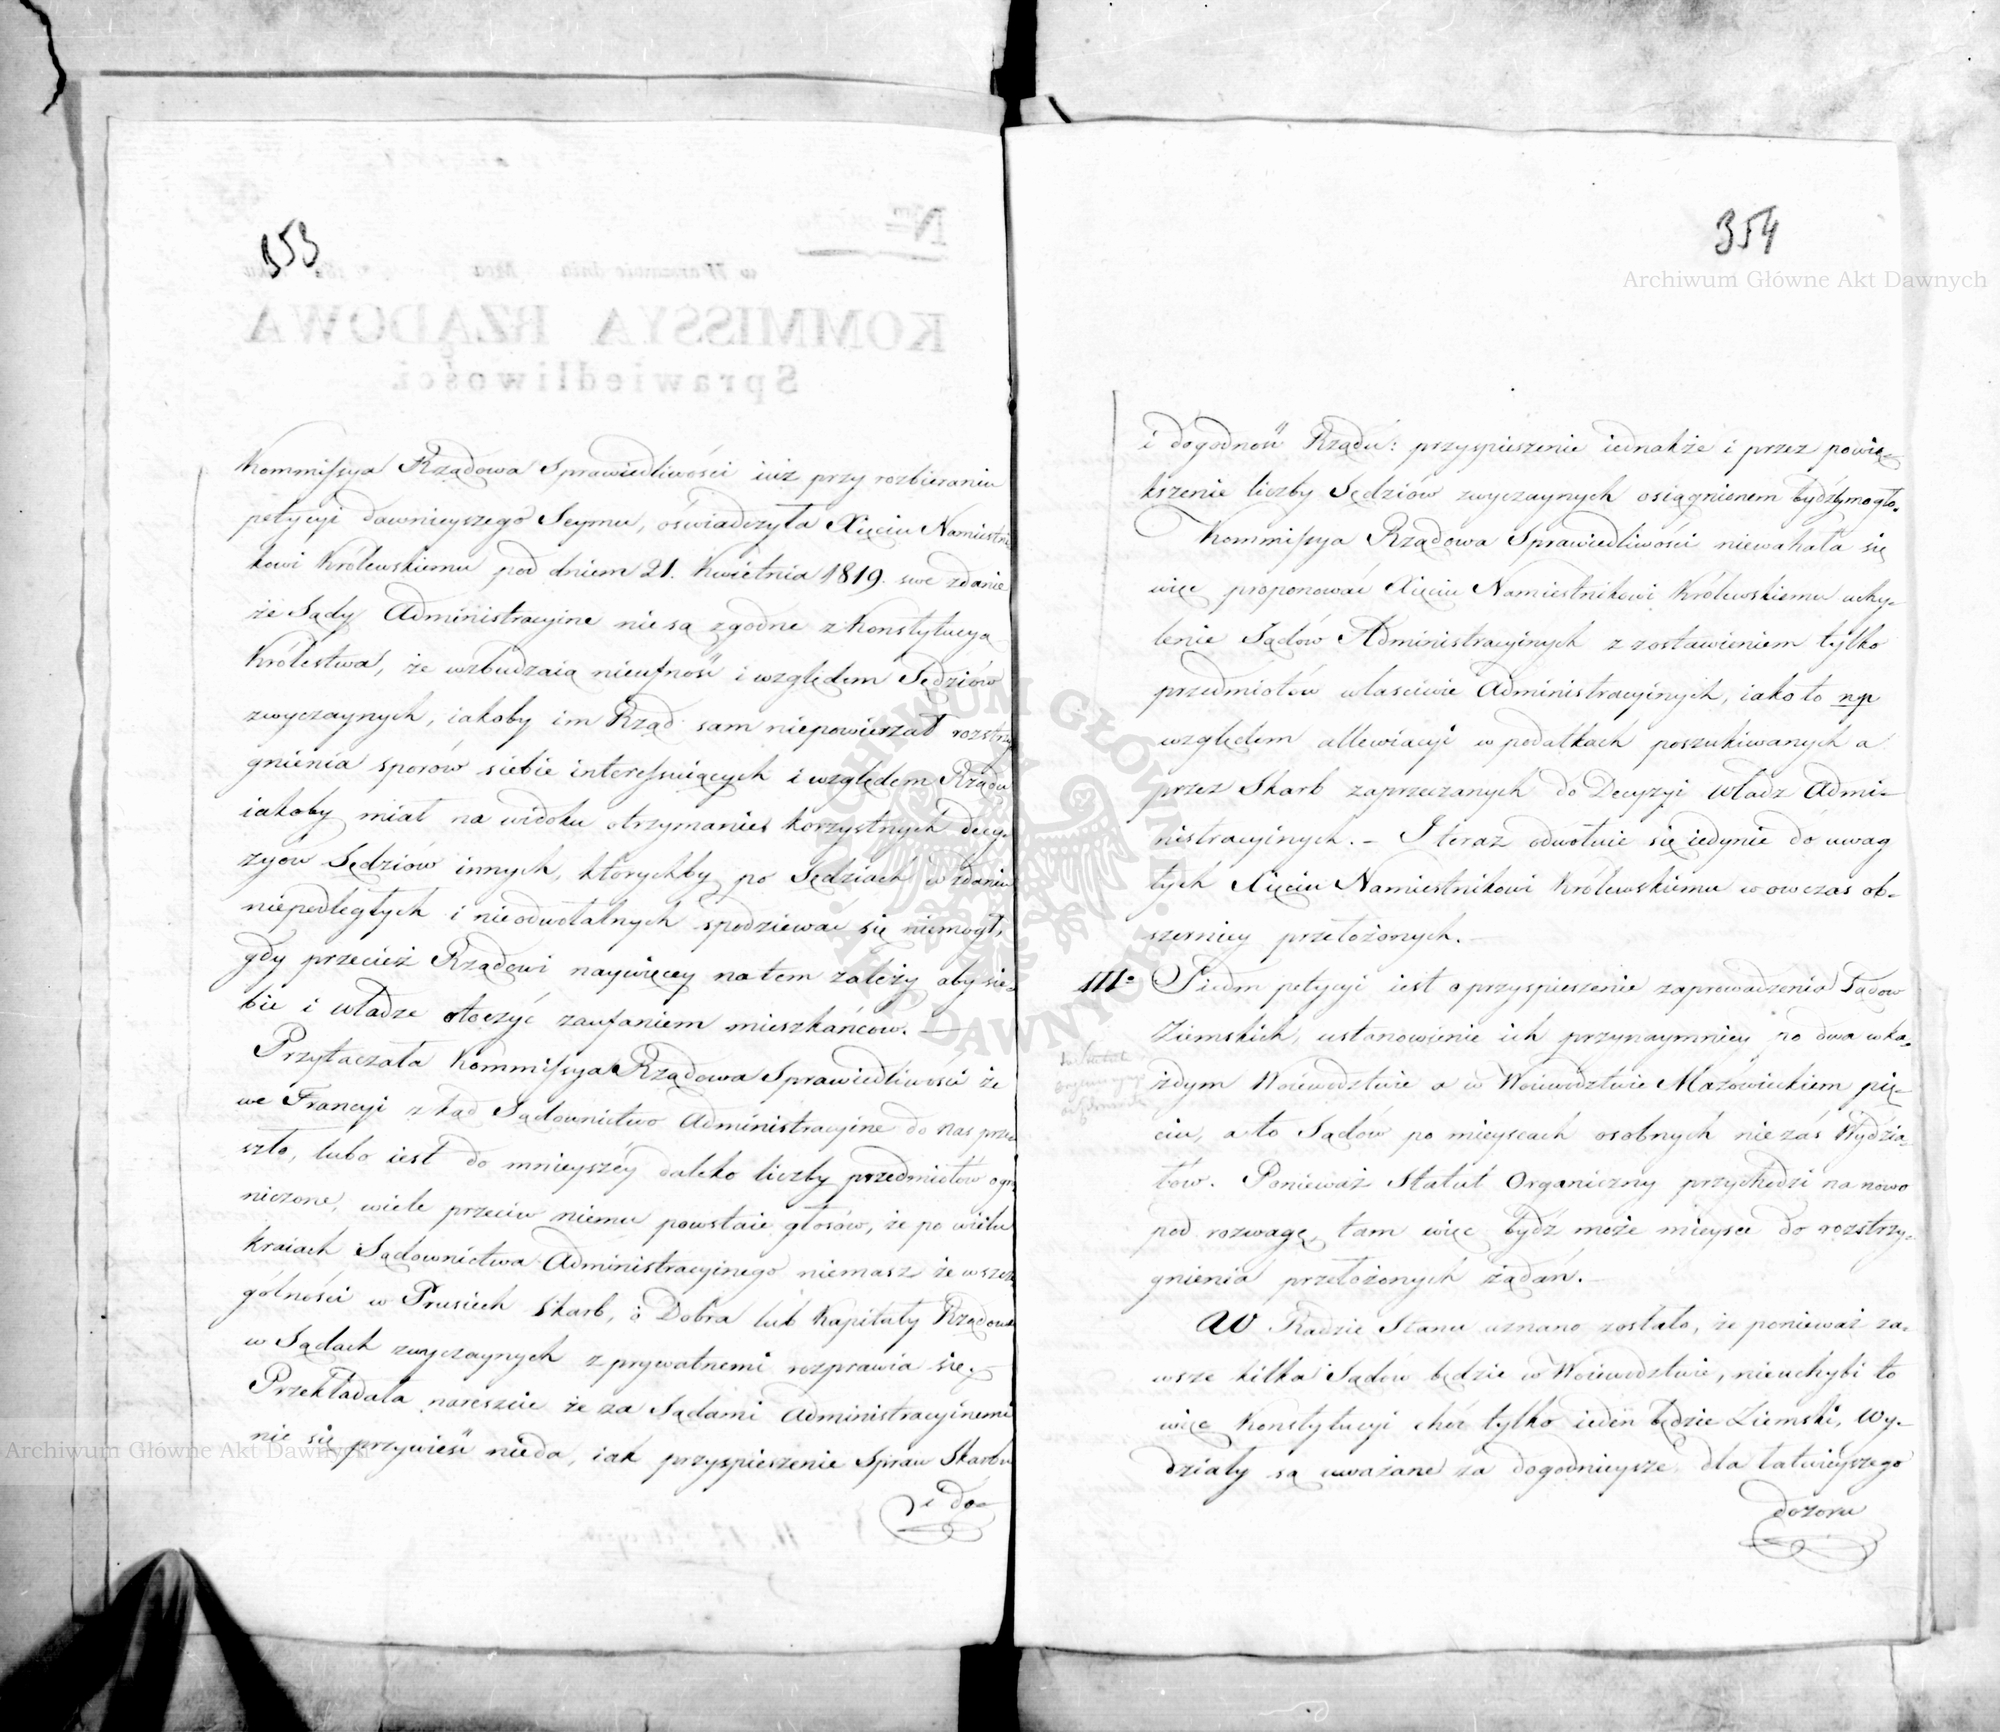 353
Kommissya Rządowa Sprawiedliwości iuż przy rozbieraniu
petycyi dawnieyszego Seymu, oświadczyła Xięciu Namiestni
kowi Królewskiemu pod dniem 21. Kwietnia 1819. swe zdanie
że Sądy Administracyine nie są zgodne z Konstytucyą
Królestwa, że wzbudzaią nieufność i względem Sędziów
zwyczaynych, iakoby im Rząd sam niepowierzał rozstrzy
gnienia sporów siebie interessuiących i względem Rządu
iakoby miał na widoku otrzymanie korzystnych decy-
zyow Sędziów innych, którychby po Sędziach w zdaniu
niepodległych i nieodwołalnych spodziewać się niemogł,
gdy przecież Rządowi naywięcey na tem zależy aby sie-
bie i władze otoczyć zaufaniem mieszkańców. —
Przytaczała Kommissya Rządowa Sprawiedliwości że
we Francyi zkąd Sądownictwo Administracyine do nas prze
szło, lubo iest do mnieyszéy daleko liczby przedmiotów ogra
niczone, wiele przeciw niemu powstaie głosów, że po wielu
kraiach Sądownictwa Administracyinego niemasz że w szcze
gólności w Prusiech Skarb, o Dobra lub Kapitały Rządowe
w Sądach zwyczaynych z prywatnemi rozprawia się.
Przekładała nareszcie że za Sądami Administracyinemi
nic się przywieść nieda, iak przyspieszenie Spraw Skarbu
i do-
354
Archiwum Główne Akt Dawnych
i dogodność Rządu: przyspieszenie iednakże i przez powię-
kszenie liczby Sędziów zwyczaynych osiągnionem bydźby mogło.
Kommissya Rządowa Sprawiedliwości niewahała się
więc proponować Xięciu Namiestnikowi Królewskiemu uchy-
lenie Sądów Administracyinych z zostawieniem tylko
przedmiotów właściwie Administracyinych, iako to np
względem allewiacyi w podatkach poszukiwanych a
przez Skarb zaprzeczanych do Decyzyi Władz Admi-
nistracyinych. – I teraz odwołuie się iedynie do uwag
tych Xięciu Namiestnikowi Królewskiemu wowczas ob-
szerniey przełożonych. —
III° Siedm petycyi iest o przyspieszenie zaprowadzenia Sądów
Ziemskich, ustanowienie ich przynaymniey po dwa w ka-
żdym Woiewództwie a w Woiewództwie Mazowieckiem pię-
ciu, a to Sądów po mieyscach osobnych nie zaś Wydzia-
łów. Ponieważ Statut Organiczny przychodzi na nowo
pod rozwagę, tam więc bydź może mieysce do rozstrzy-
gnienia przełożonych żądań. —
W Radzie Stanu uznano zostało, że ponieważ za-
wsze kilka Sądów będzie w Woiewództwie, nieuchybi to
więc Konstytucyi choć tylko ieden będzie Ziemski, Wy-
działy są uważane za dogodnieysze, dla łatwieyszego
dozoru
Archiwum Główne Akt Dawnych
ARCHIWUM GŁÓWNE AKT DAWNYCH